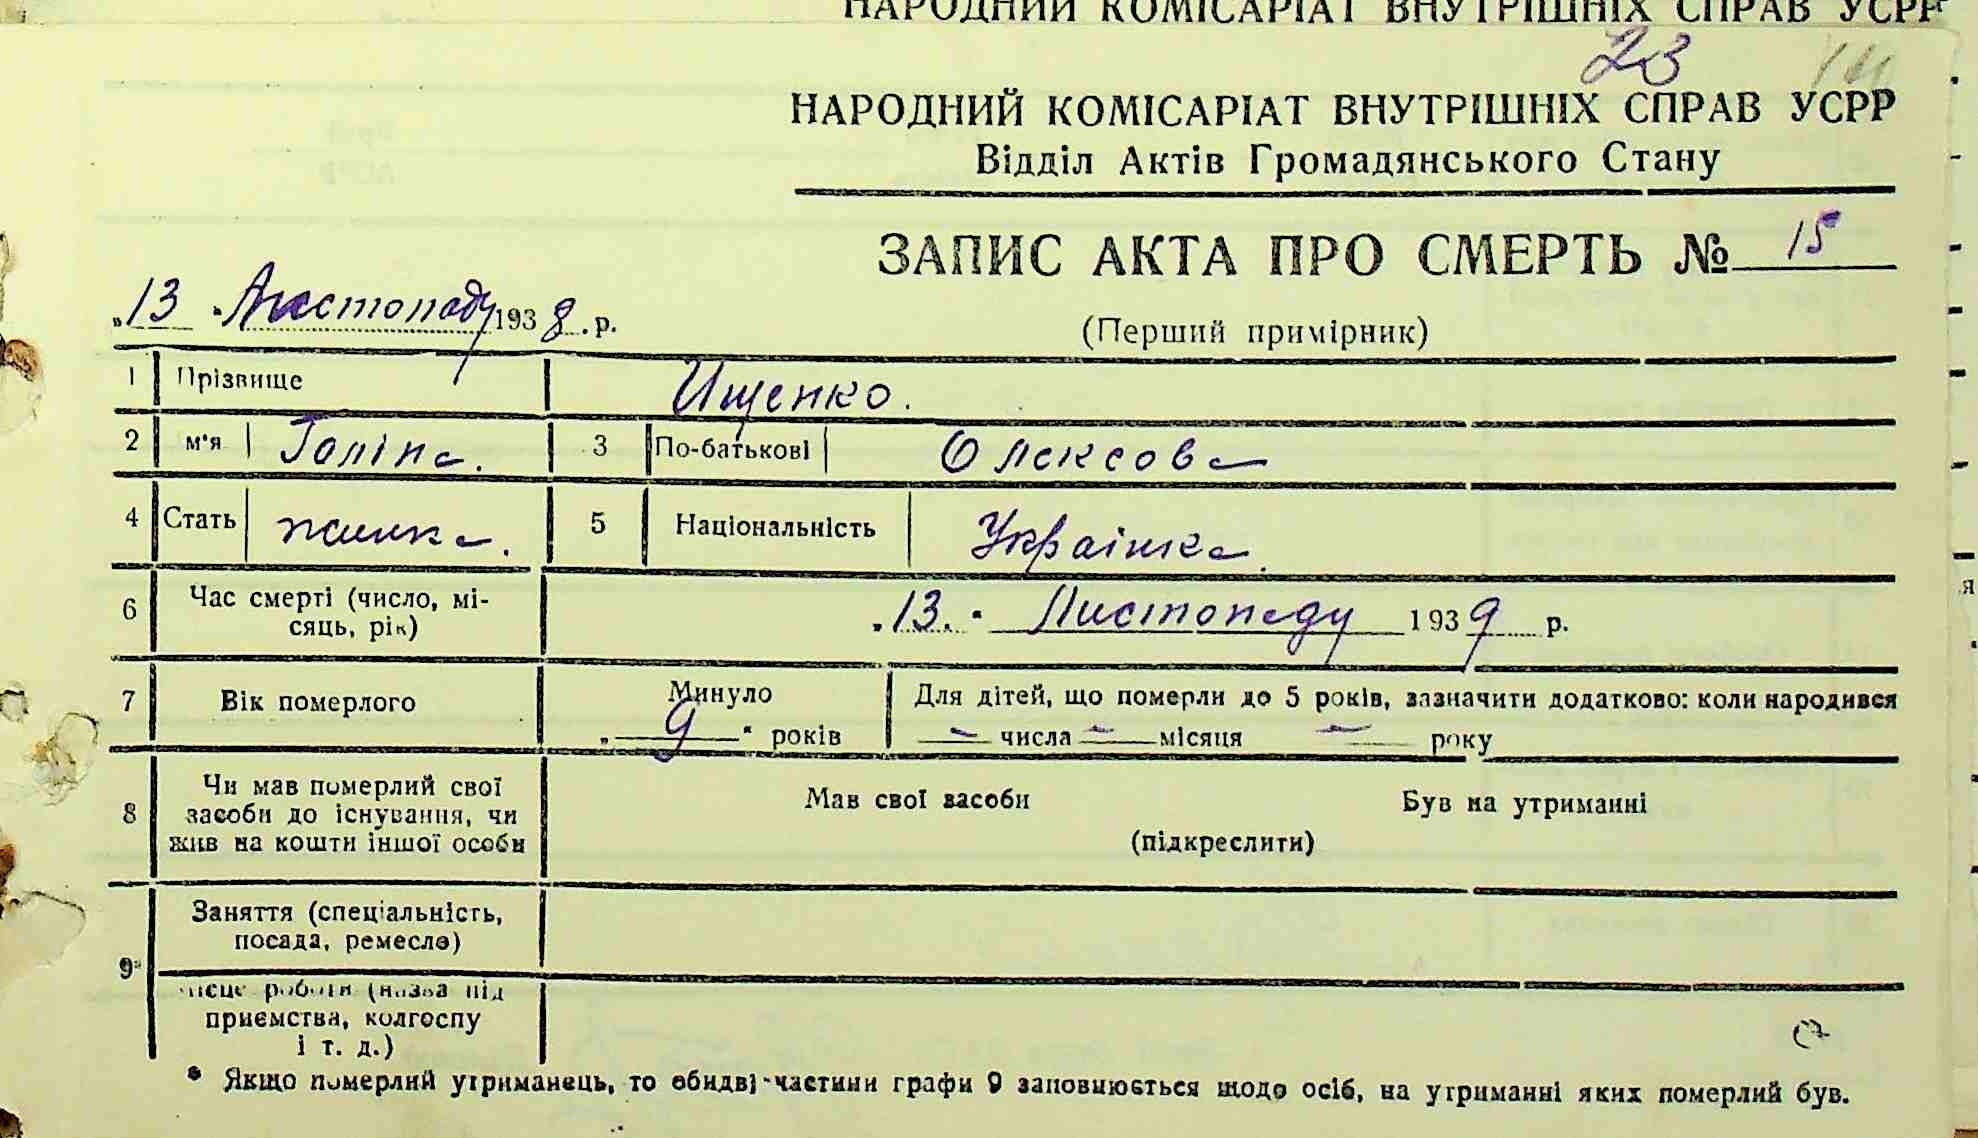 НАРОДНИЙ КОМІСАРІАТ ВНУТРІШНІХ СПРАВ УСРР
23
НАРОДНИЙ КОМІСАРІАТ ВНУТРІШНІХ СПРАВ УСРР
Відділ Актів Громадянського Стану
ЗАПИС АКТА ПРО СМЕРТЬ № 15
„13" Листопаду 1938 р.
(Перший примірник)
1 Прізвище Ищенко.
2 м'я Галіна. 3 По-батькові Олексова
4 Стать жинка. 5 Національність Украінка.
6 Час смерті (число, мі-
сяць, рік) „13." Листопаду 1939 р.
7 Вік померлого Минуло Для дітей, що померли до 5 років, зазначити додатково: коли народився
„9" років — числа — місяця — року
8 Чи мав померлий свої
засоби до існування, чи
жив на кошти іншої особи
Мав свої засоби Був на утриманні
(підкреслити)
9* Заняття (спеціальність,
посада, ремесло)
місце роботи (назва під
приємства, колгоспу
і т. д.)
* Якщо померлий утриманець, то обидві частини графи 9 заповнюється щодо осіб, на утриманні яких померлий був.
я